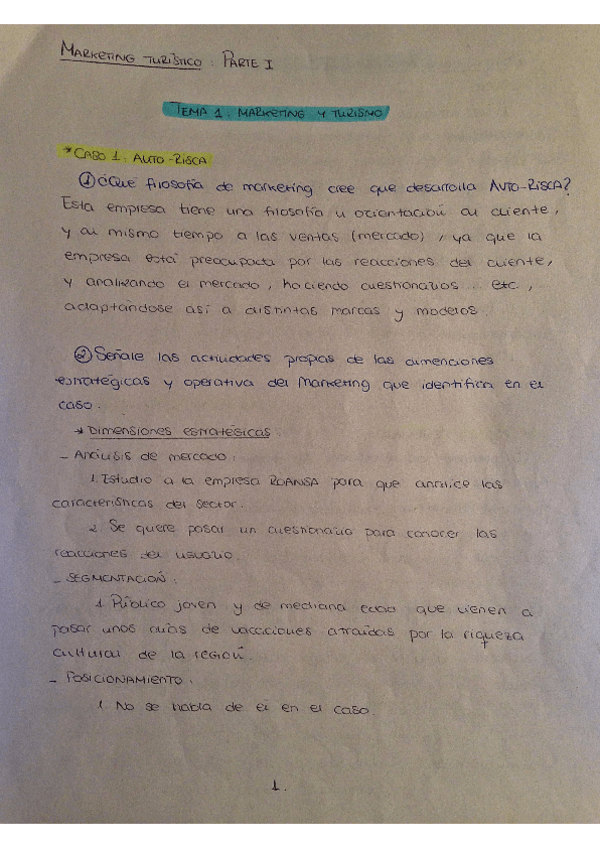 MARKETING TURÍSTICO : PARTE I
TEMA 1 : MARKETING Y TURISMO
* CASO 1 : AUTO-RISCA
① ¿Qué filosofía de marketing cree que desarrolla AUTO-RISCA?
Esta empresa tiene una filosofía u orientación al cliente,
y al mismo tiempo a las ventas (mercado), ya que la
empresa está preocupada por las reacciones del cliente,
y analizando el mercado, haciendo cuestionarios... etc,
adaptándose así a distintas marcas y modelos.
② Señale las actividades propias de las dimenciones
estratégicas y operativa del Marketing que identifica en el
caso.
→ Dimensiones estratégicas.
- Análisis de mercado:
1. Estudio a la empresa ROANSA para que analice las
características del sector.
2. Se quiere pasar un cuestionario para conocer las
reacciones del usuario.
- SEGMENTACIÓN:
1. Público joven y de mediana edad que vienen a
pasar unos días de vacaciones atraídas por la riqueza
cultural de la región.
- POSICIONAMIENTO:
1. No se habla de él en el caso.
1.